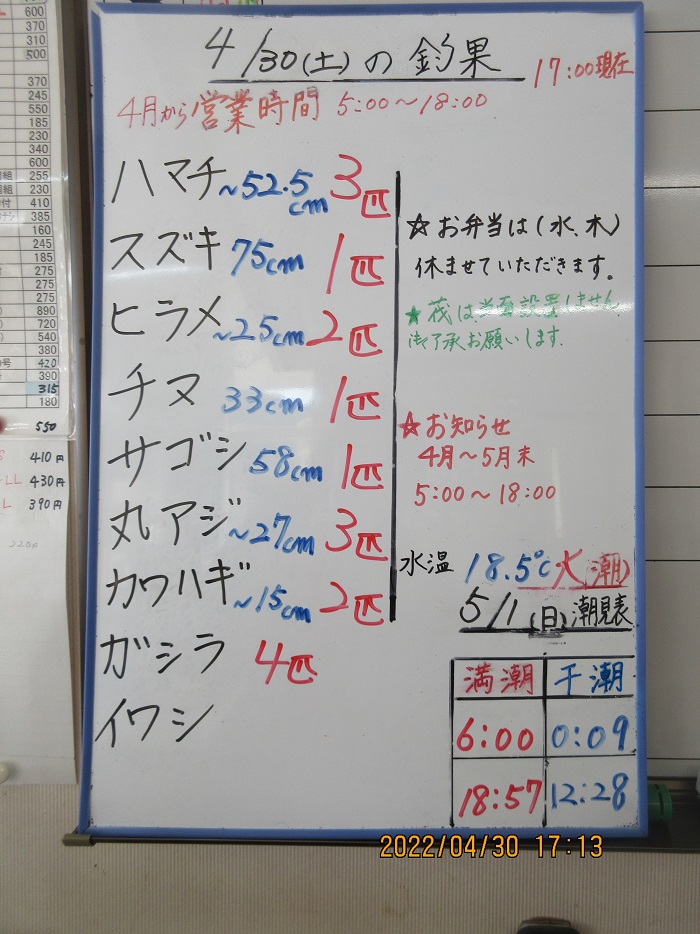 4/30(土)の釣果
17:00現在
4月から営業時間 5:00～18:00
ハマチ ～52.5cm 3匹
スズキ 75cm 1匹
ヒラメ ～25cm 2匹
チヌ 33cm 1匹
サゴシ 58cm 1匹
丸アジ ～27cm 3匹
カワハギ ～15cm 2匹
ガシラ 4匹
イワシ
☆お弁当は(水、木)
休ませていただきます。
★筏は当面設置しません
御了承お願いします.
☆お知らせ
4月～5月末
5:00～18:00
水温 18.5℃ 大潮)
5/1(日)潮見表
満潮 干潮
6:00 0:09
18:57 12:28
600
370
310
500
370
245
550
185
230
340
600
255
230
410
385
160
245
185
275
275
275
890
720
540
380
号 420
390
315
180
550
410円
LL 430円
L 390円
220円
2022/04/30 17:13